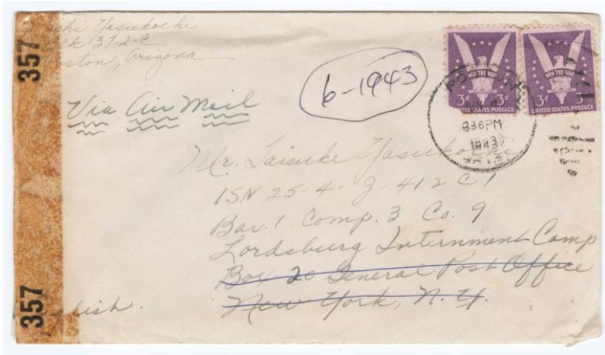 357
Yasukochi
37-2-C
Arizona
Via Air Mail
6-1943
WIN THE WAR
3¢ 3¢
UNITED STATES POSTAGE UNITED STATES POSTAGE
PM
1943
Mr. Taisuke Yasukochi
ISN 25-4-J-412 CI
Bar. 1 Comp. 3 Co. 9
Lordsburg Internment Camp
Box 20 General Post Office
New York, N.Y.
357